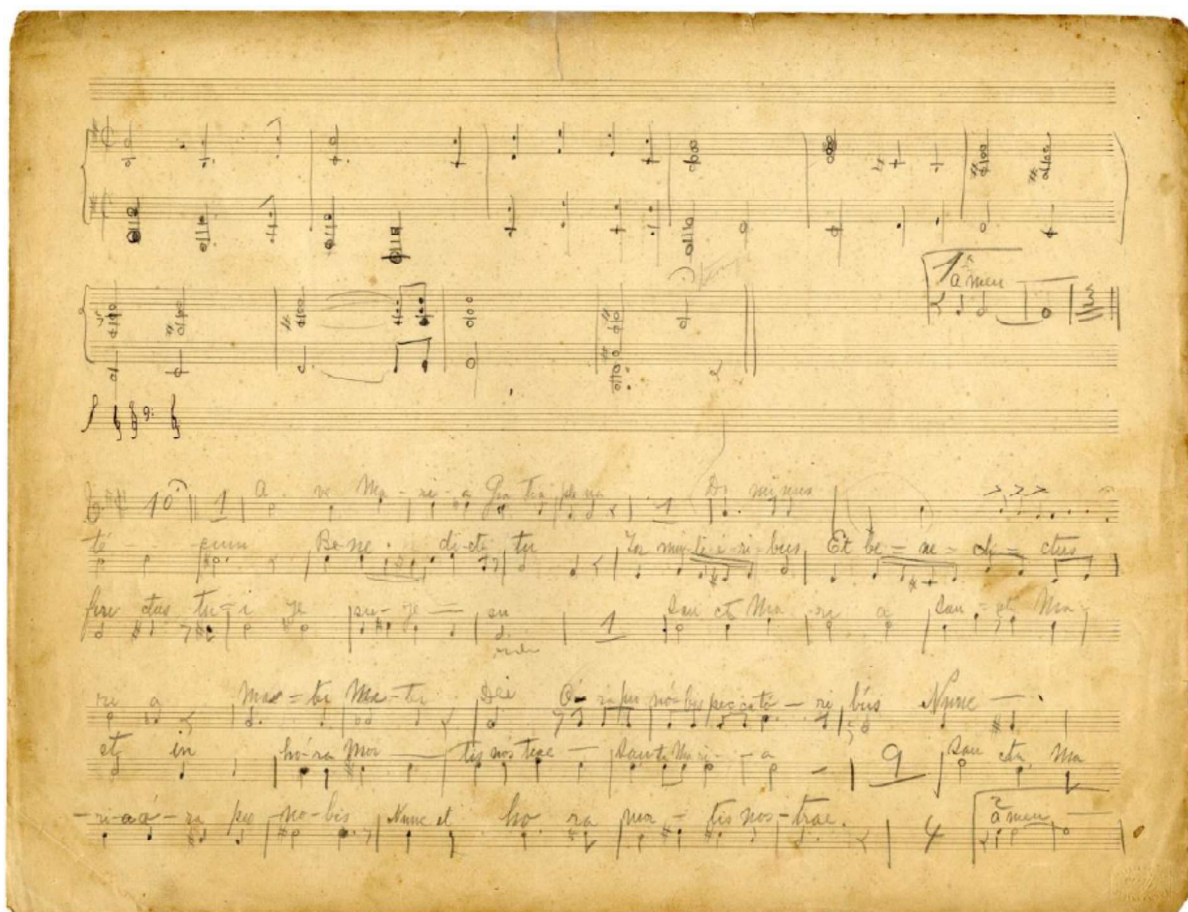 1ª
amen
10 1 A - ve Ma - ri - a Gra tia ple na 1 Do minus
te - cum Be - ne - di - cta tu In mu - li - e - ri - bus Et be - ne - di - ctus
fru ctus tu - i 1 San cta Ma - ri a San - cta Ma -
ri a Ma - ter Ma - ter Dei O - ra pro nó - bis pec cató - ri bús Nunc -
et in hó - ra Mor - tis nós trae - Sancta Mari - a 9 San cta Ma
- ri - a ó - ra pro - no - bis Nunc et ho ra mor - tis nos - trae. 4 2 amen